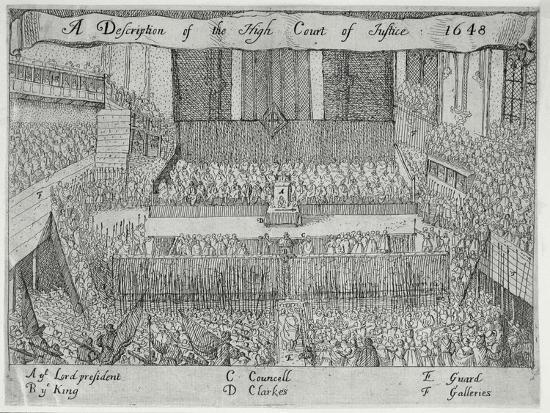 A Description of the High Court of Iustice 1648
F
A
D
C
F
E
A yᵉ Lord president
B yᵉ King
C Councell
D Clarkes
E Guard
F Galleries